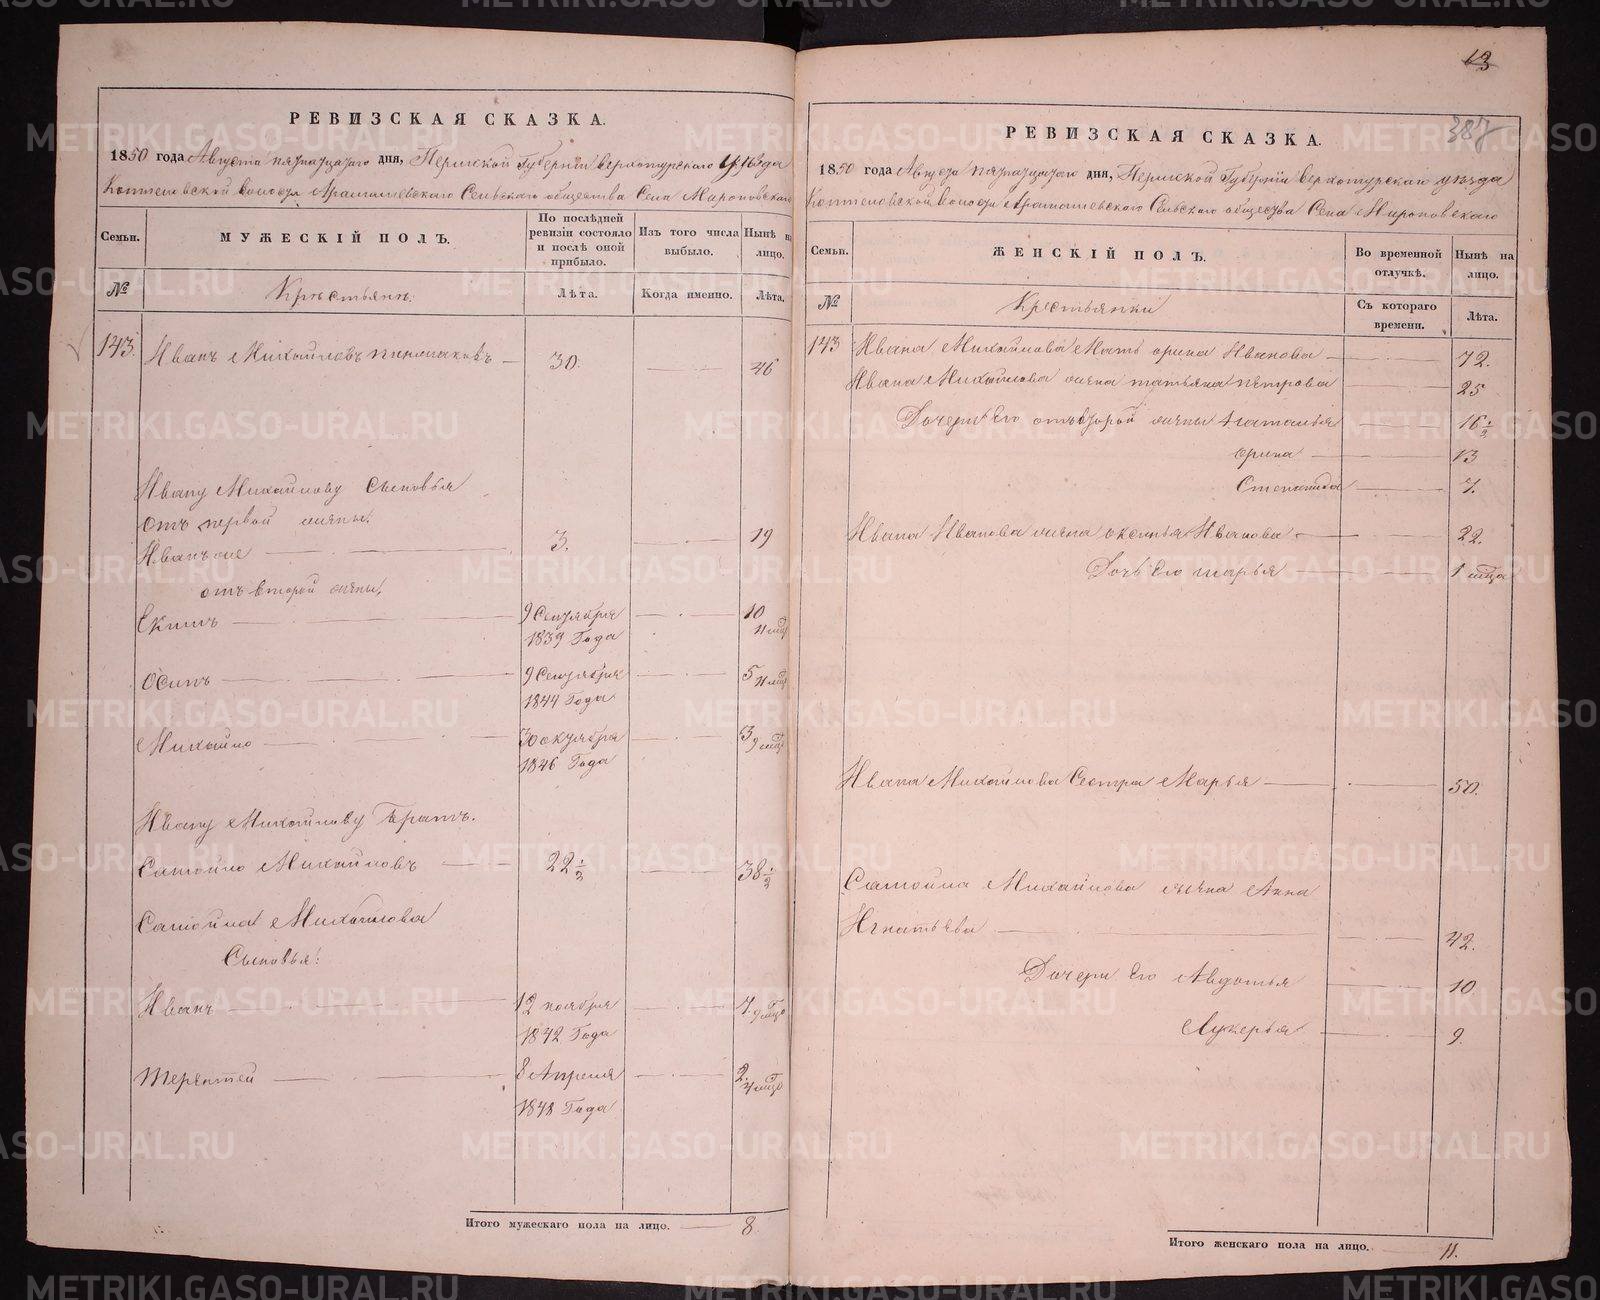 13
387
РЕВИЗСКАЯ СКАЗКА.
1850 года Августа пятнадцатого дня, Пермской Губернiи Верхотурскаго Уѣзда
Коптеловской волости Арамашевскаго Сельскаго общества Села Мироновскаго
Семьи. МУЖЕСКIЙ ПОЛЪ. По послѣдней ревизiи состояло и послѣ оной прибыло. Изъ того числа выбыло. Нынѣ на лицо.
№ Крестьяне: Лѣта. Когда именно. Лѣта.
143. Иванъ Михайловъ 30. 46
Ивану Михайлову Сыновья
отъ первой жены:
Иванъ же 3. 19
отъ второй жены:
Екимъ 9 Сентября 10
1839 Года 11 мѣц
Осипъ 9 Сентября 5 11 мѣц
1844 Года
Михайло 30 октября 3 9 мѣц
1846 Года
Ивану Михайлову Братъ.
Самойло Михайловъ 22 1/2 38 1/2
Самойла Михайлова
Сыновья:
Иванъ 12 ноября 7. 9 мѣцо
1842 Года
Терентей 8 Апреля 2. 4 мѣцо
1848 Года
Итого мужескаго пола на лицо. 8.
РЕВИЗСКАЯ СКАЗКА.
1850 года Августа пятнадцатого дня, Пермской Губернiи Верхотурскаго уѣзда
Коптеловской волости Арамашевскаго Сельскаго общества Села Мироновскаго
Семьи. ЖЕНСКIЙ ПОЛЪ. Во временной отлучкѣ. Нынѣ на лицо.
№ Крестьянки Съ котораго времени. Лѣта.
143 Ивана Михайлова Мать орина Иванова 72.
Ивана Михайлова жена татьяна петрова 25
Дочери Его отъ второй жены Наталья 16 1/2
орина 13
Степанида 7.
Ивана Иванова жена оксинья Иванова 22.
Дочь Его марья 1 мѣца
Ивана Михайлова Сестра Марья 50.
Самойла Михайлова жена Анна
Игнатьева 42.
Дочери Его Авдотья 10.
Лукерья 9.
Итого женскаго пола на лицо. 11.
METRIKI.GASO-URAL.RU